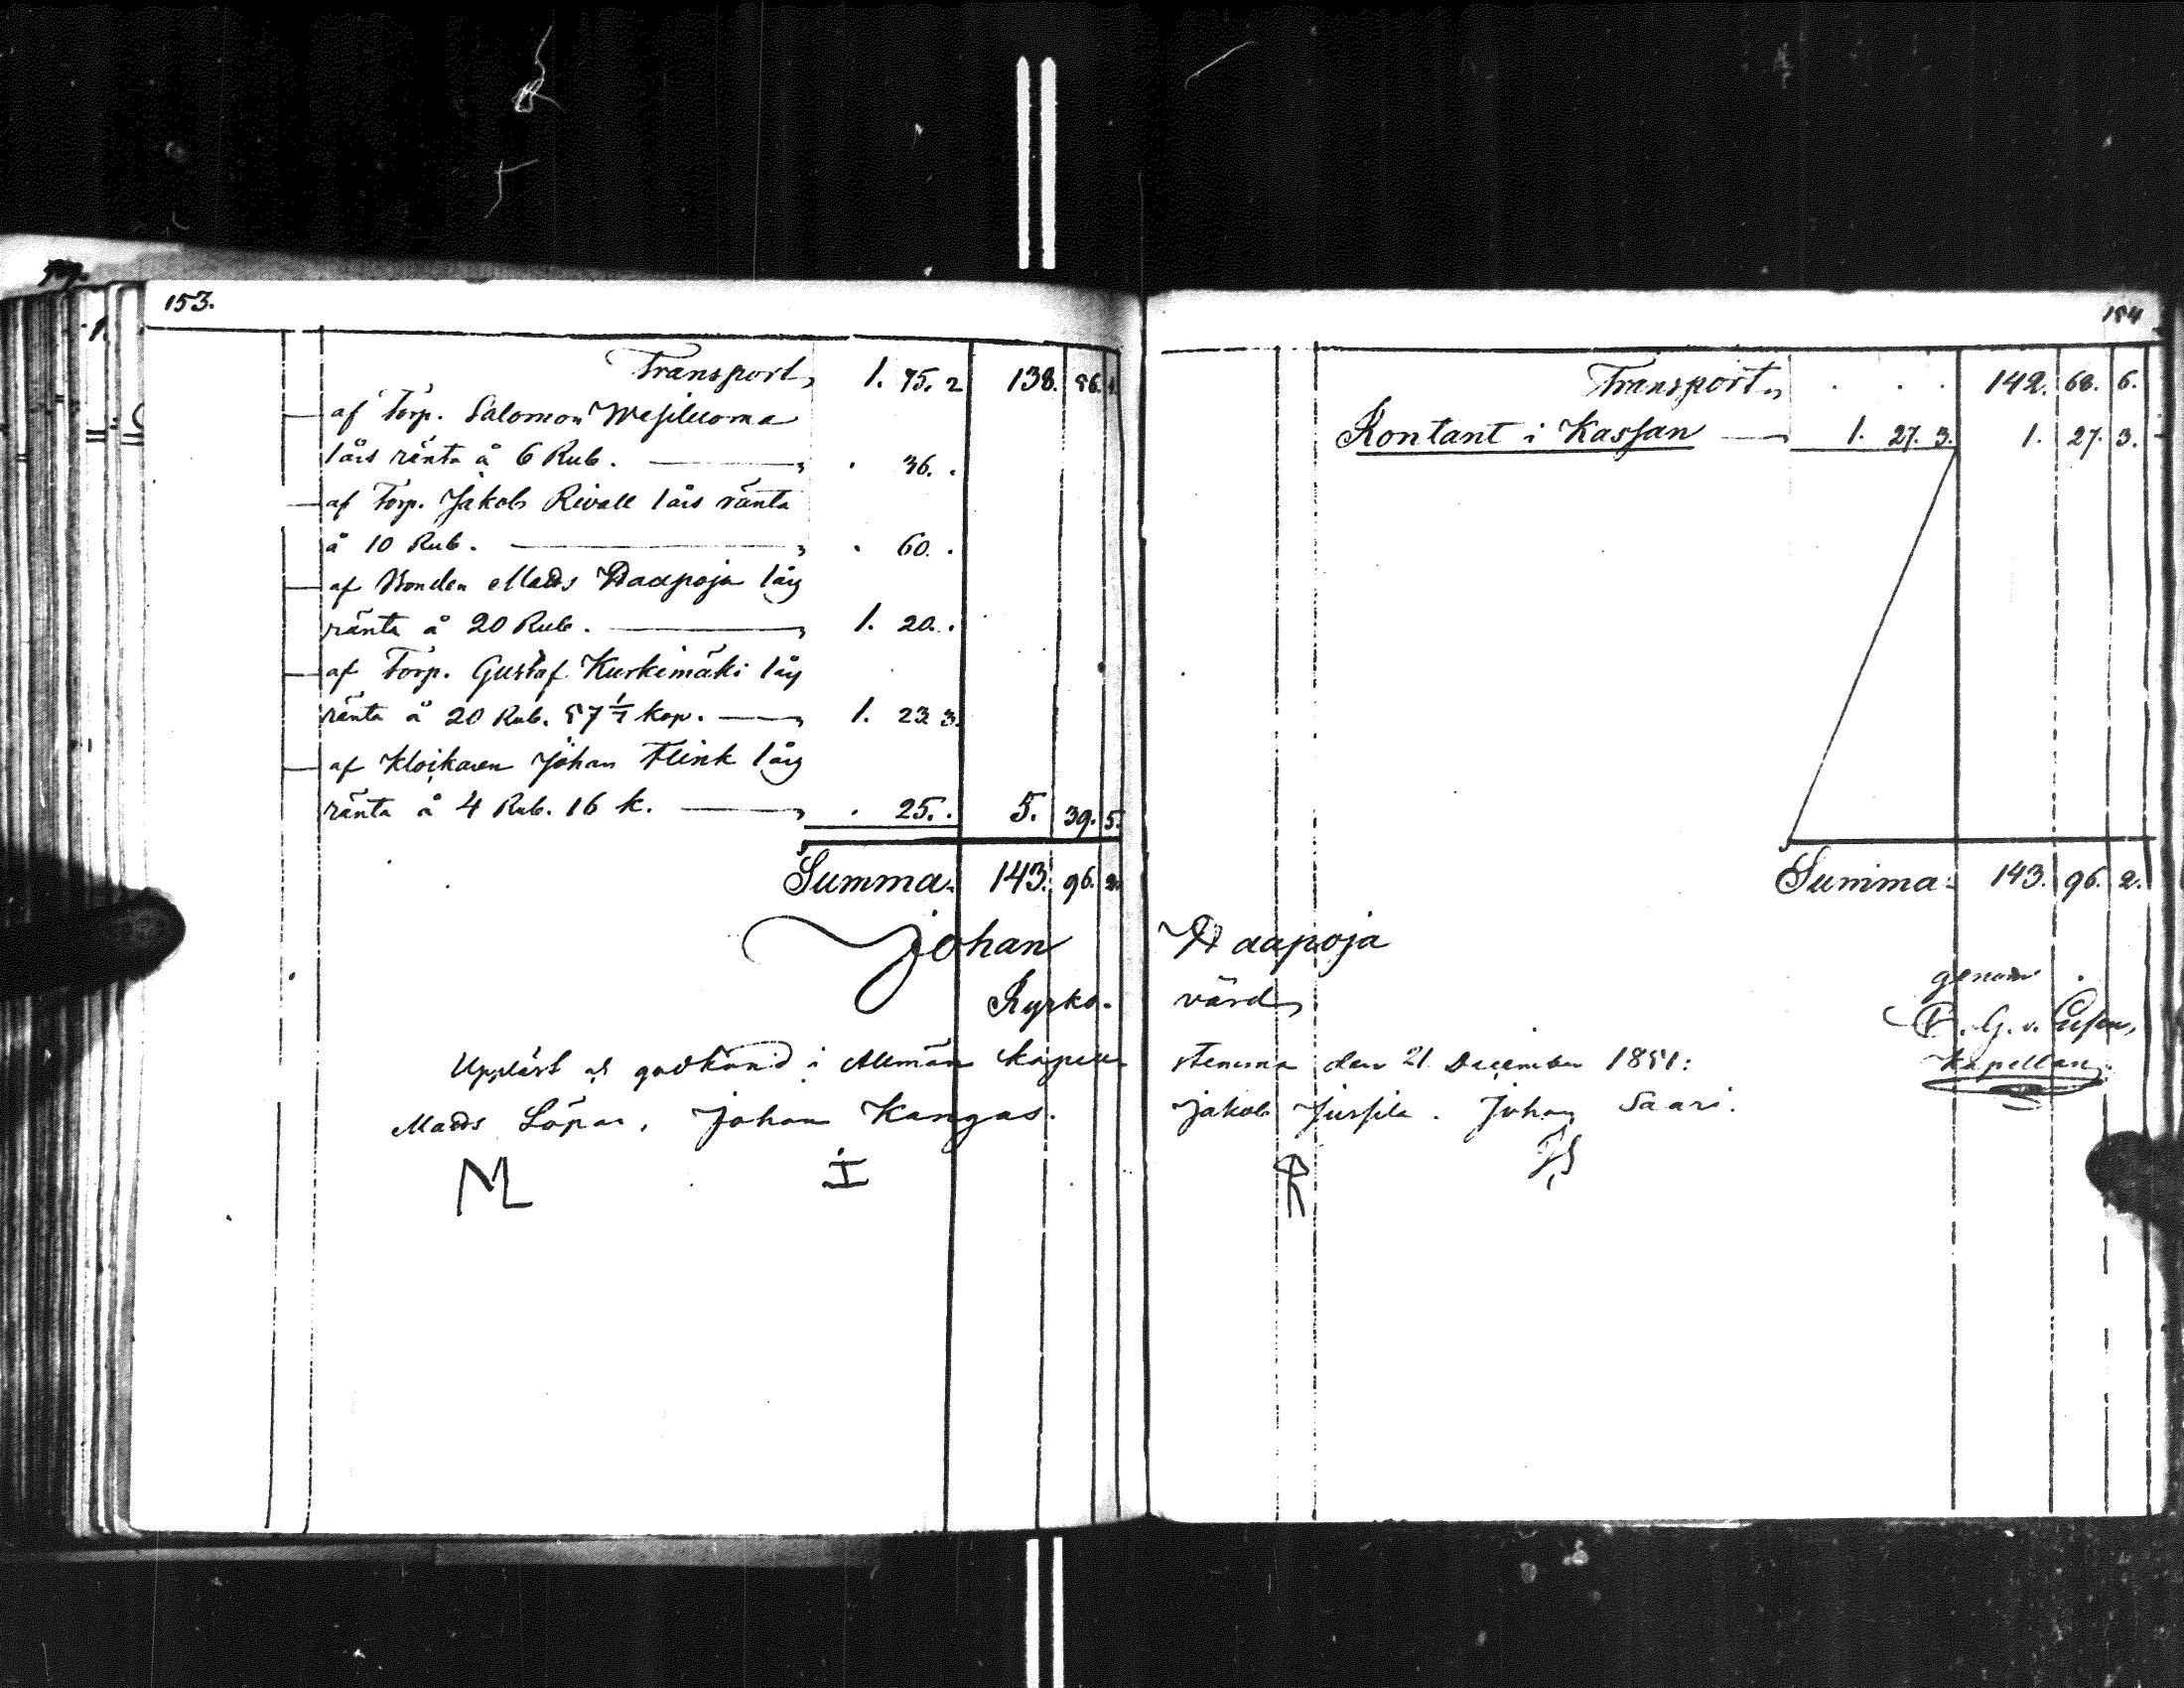 153.
Transport, 1. 75. 2 138. 56. 4.
af Torp. Salomon Wesiluoma
1 års ränta å 6 Rub. — , . 36. .
af Torp. Jakob Rivall 1 års ränta
å 10 Rub. — , . 60. .
af Bonden Matts Haapoja 1 års
ränta å 20 Rub. — , 1. 20. .
af Torp. Gustaf Kurkimäki 1 års
ränta å 20 Rub. 57 1/7 kop. — , 1. 23. 3.
af Klockaren Johan Flink 1 års
ränta å 4 Rub. 16 k. — , . 25. . 5. 39. 5.
Summa. 143. 96. 2.
154
Transport, . . . 142. 68. 6.
Kontant i Kassan — , 1. 27. 3. 1. 27. 3.
Summa. 143. 96. 2.
Johan Haapoja
Kyrko- värd,
genom
G. v.
Kapellan.
Uppläst och godkänd i Allmän kapell stemma den 21 December 1851:
Matts Löpar, Johan Kangas. Jakob Jussila. Johan Saari.
ML I